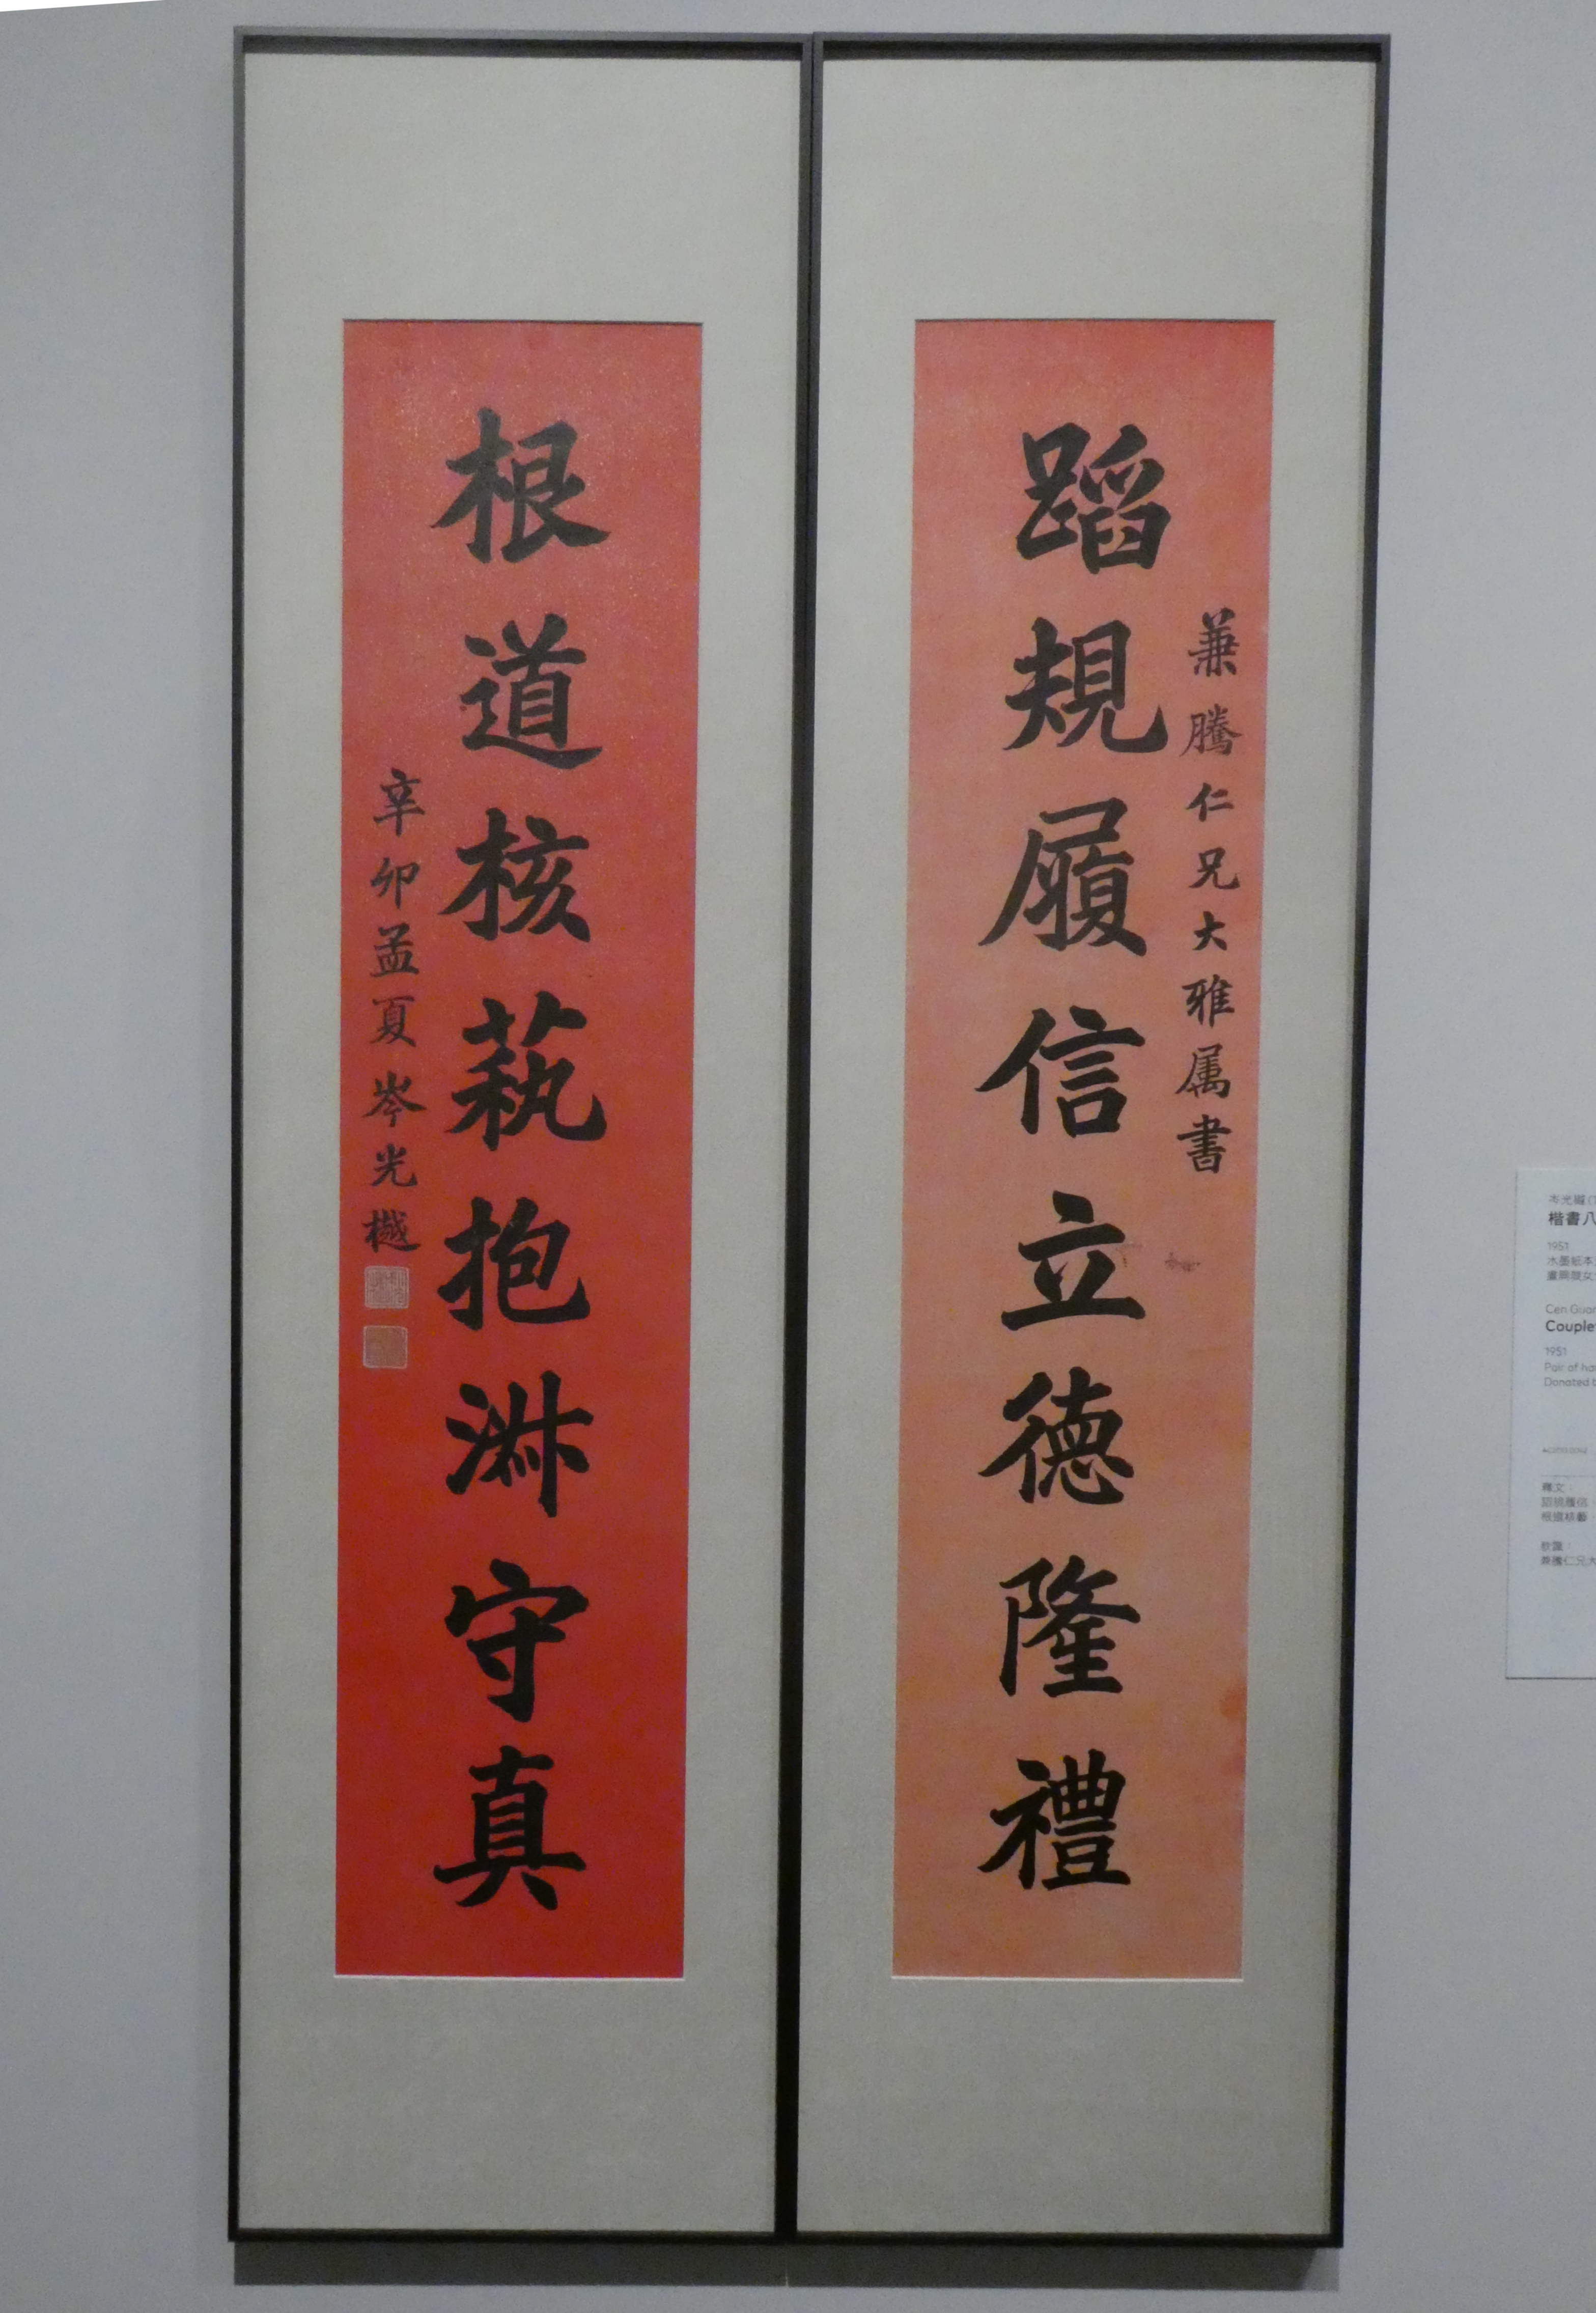 蹈規履信立德隆禮
兼騰仁兄大雅属書
根道核蓺抱淋守真
辛卯孟夏岑光樾
楷書八
1951
水墨紙本
Cen Guan
Couple
1951
Pair of ha
Donated b
釋文：
蹈規履信
根道核藝
款識：
兼騰仁兄大